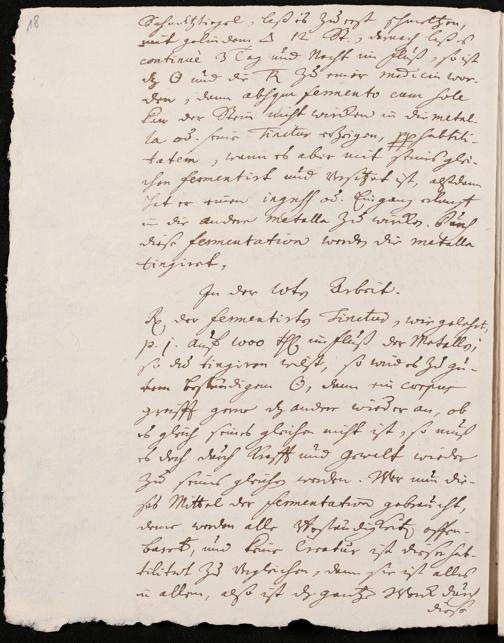 18
Schmeltztiegel, laß es zu erst schmeltzen,
mit gelindem △ 12 St., darnach laß es
continuè 3 Tag und Nacht im fluß, so ist
dz ☉ und die zu einer medicin wor-
den, dann absque fermento cum sole
kan der Stein nicht würcken in die metal-
la od. seine Tinctur erzeigen, ppp subtili-
tatem, wann er aber mit seines glei-
chen fermentirt und ist, alßdann
hat er einen ingress od. Eingang
in die andere metalla zu würcken. Durch
diese fermentation werden die metalla
tingiret.
In der Arbeit.
℞ der fermentirten Tinctur, wie gelehrt,
p. j. auf 1000 im fluß der Metallen,
so du tingiren wilst, so wird es zu gu-
tem beständigem ☉, dann ein corpus
greifft gerne dz andere wieder an, ob
es gleich seines gleichen nicht ist, so muß
es doch durch Krafft und gewalt wieder
zu seines gleichen werden. Wer nun die-
ses Mittel der fermentation gebraucht,
deme werden alle offen-
bahret, und keine Creatur ist dieser sub-
tilitet zu vergleichen, dann sie ist alles
in allem, also ist dz gantze Werck durch
diese